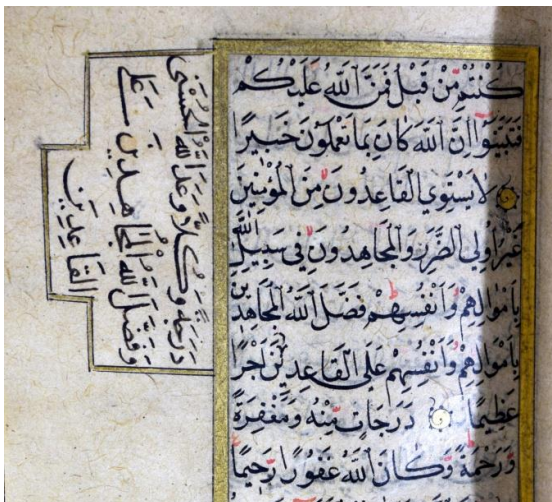 كُنْتُمْ مِنْ قَبْلُ فَمَنَّ ٱللَّهُ عَلَيْكُمْ
فَتَبَيَّنُوٓا اِنَّ ٱللَّهَ كَانَ بِمَا تَعْمَلُونَ خَبِيرًا
لَا يَسْتَوِي ٱلْقَاعِدُونَ مِنَ ٱلْمُؤْمِنِينَ
غَيْرُ اُولِي ٱلضَّرَرِ وَٱلْمُجَاهِدُونَ فِي سَبِيلِ ٱللَّهِ
بِاَمْوَالِهِمْ وَاَنْفُسِهِمْ فَضَّلَ ٱللَّهُ ٱلْمُجَاهِدِينَ
بِاَمْوَالِهِمْ وَاَنْفُسِهِمْ عَلَى ٱلْقَاعِدِينَ اَجْرًا
عَظِيمًا دَرَجَاتٍ مِنْهُ وَمَغْفِرَةً
وَرَحْمَةً وَكَانَ ٱللَّهُ غَفُورًا رَحِيمًا
دَرَجَةً وَكُلًّا وَعَدَ ٱللَّهُ ٱلْحُسْنَى
وَفَضَّلَ ٱللَّهُ ٱلْمُجَاهِدِينَ عَلَى
ٱلْقَاعِدِينَ